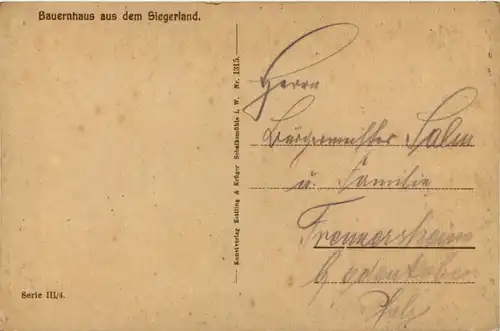 Bauernhaus aus dem Siegerland.
Kunstverlag Kettling & Krüger Schalksmühle i. W. Nr. 1315.
Herrn
Bürgermeister Salm
u. Familie
Freimersheim
b/ Edenkoben
Pfalz
Serie III/4.